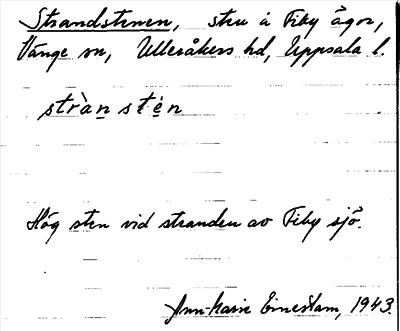 Strandstenen, sten å Fiby ägor,
Vänge sn, Ulleråkers hd, Uppsala l.
stràn stè̩n
Hög sten vid stranden av Fiby sjö.
Ann-Marie Ernestam, 1943.